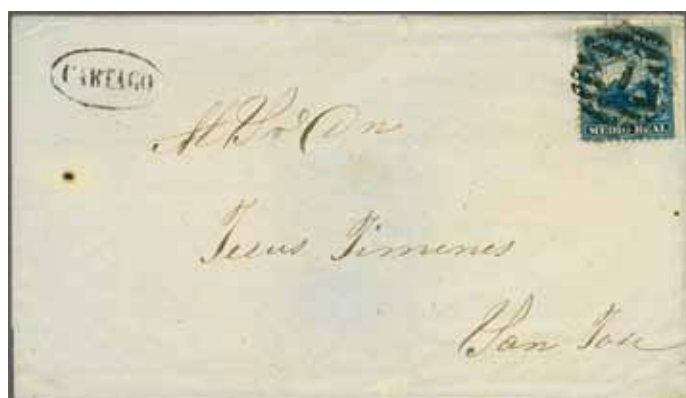 CARTAGO
MEDIO REAL
Al Sr. Dn
Jesus Jimenes
San Jose